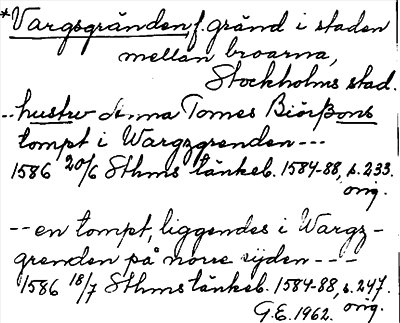 *Vargsgränden, f. gränd i staden
mellan broarna,
Stockholms stad.
--hustrv Anna Tomes Biörßons
tompt i Wargzgrenden ---
1586 20/6 Sthms tänkeb. 1584-88, s. 233.
orig.
-- en tompt, liggendes i Wargz-
grenden på norre syden ---
1586 18/7 Sthms tänkeb. 1584-88, s. 247.
G.E. 1962. orig.